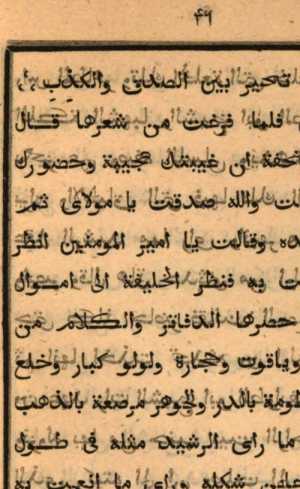 ٤٩
تحير بين الصدق والكذب
فلما فرغت من شعرها قال
تحفة ان غيبتك عجيبة وحضورك
والله صدقت يا مولاى ثم
وقالت يا امير المومنين انظر
به فنظر الخليفة الى اموال
حصرها الدفاتر والكلام من
وياقوت وحجارة ولولو كبار وخلع
بالدر والجوهر مرصعة بالذهب
ما راى الرشيد مثله فى طول
شكله وراى ما انعمت به